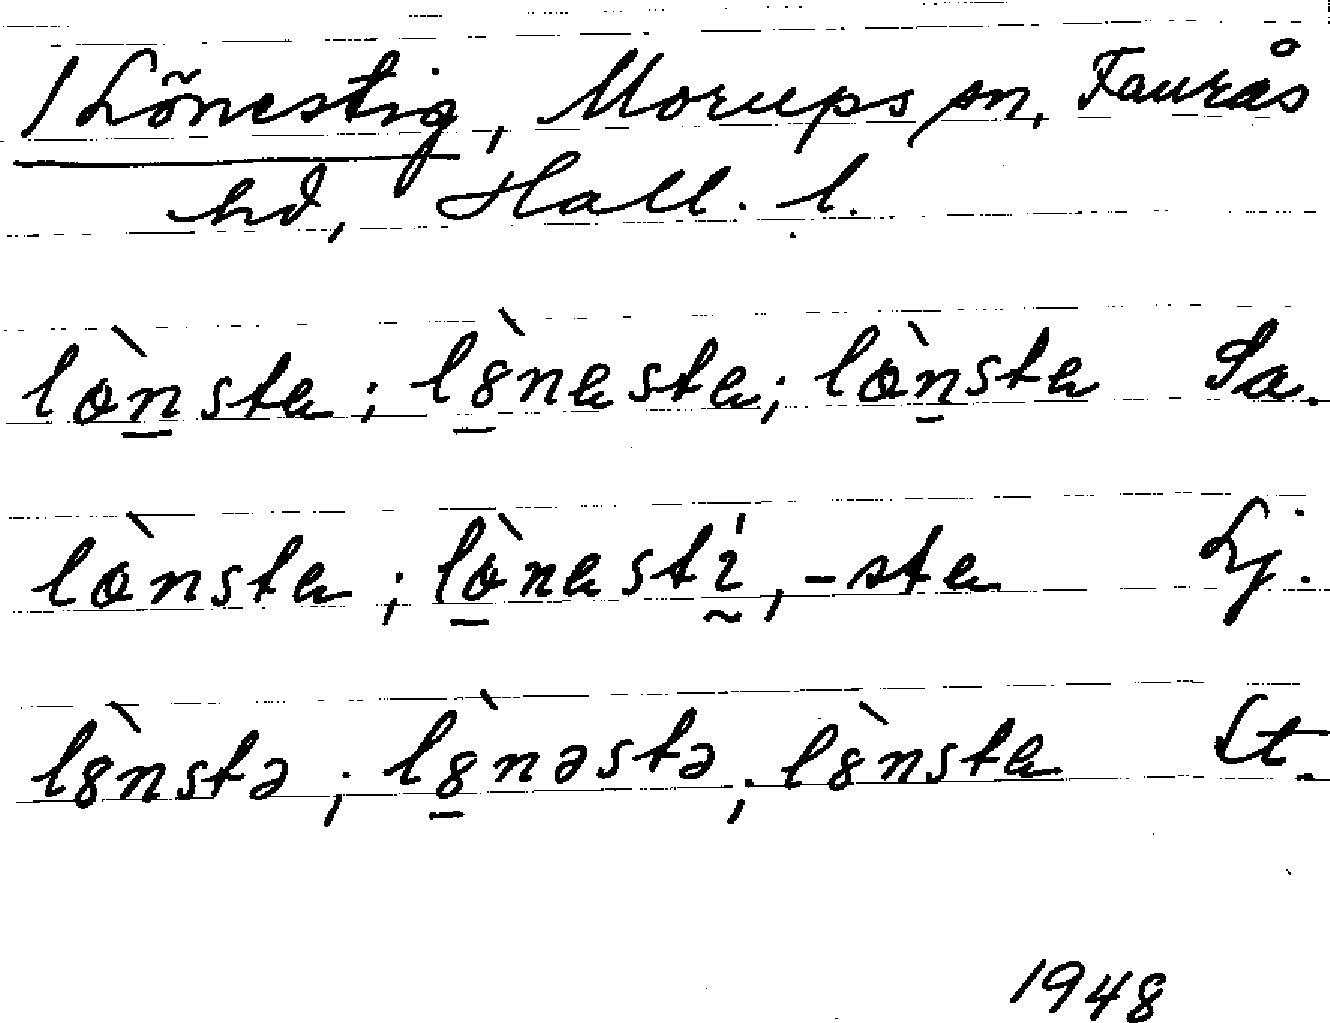 / Lönestig, Morups sn, Faurås
hd, Hall. l.
lò̱nsta; lò̱nesta; lò̱nsta Sa.
lònsta; lò̱nestí, -sta Lj.
lònstə; lò̱nəstə; lònsta Lt.
1948